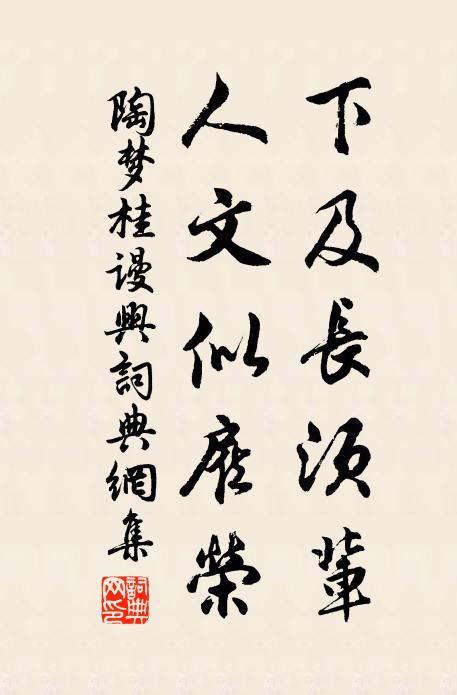 下及長須輩
人文似榮
陶梦桂谩興詞典網集
詞典网印